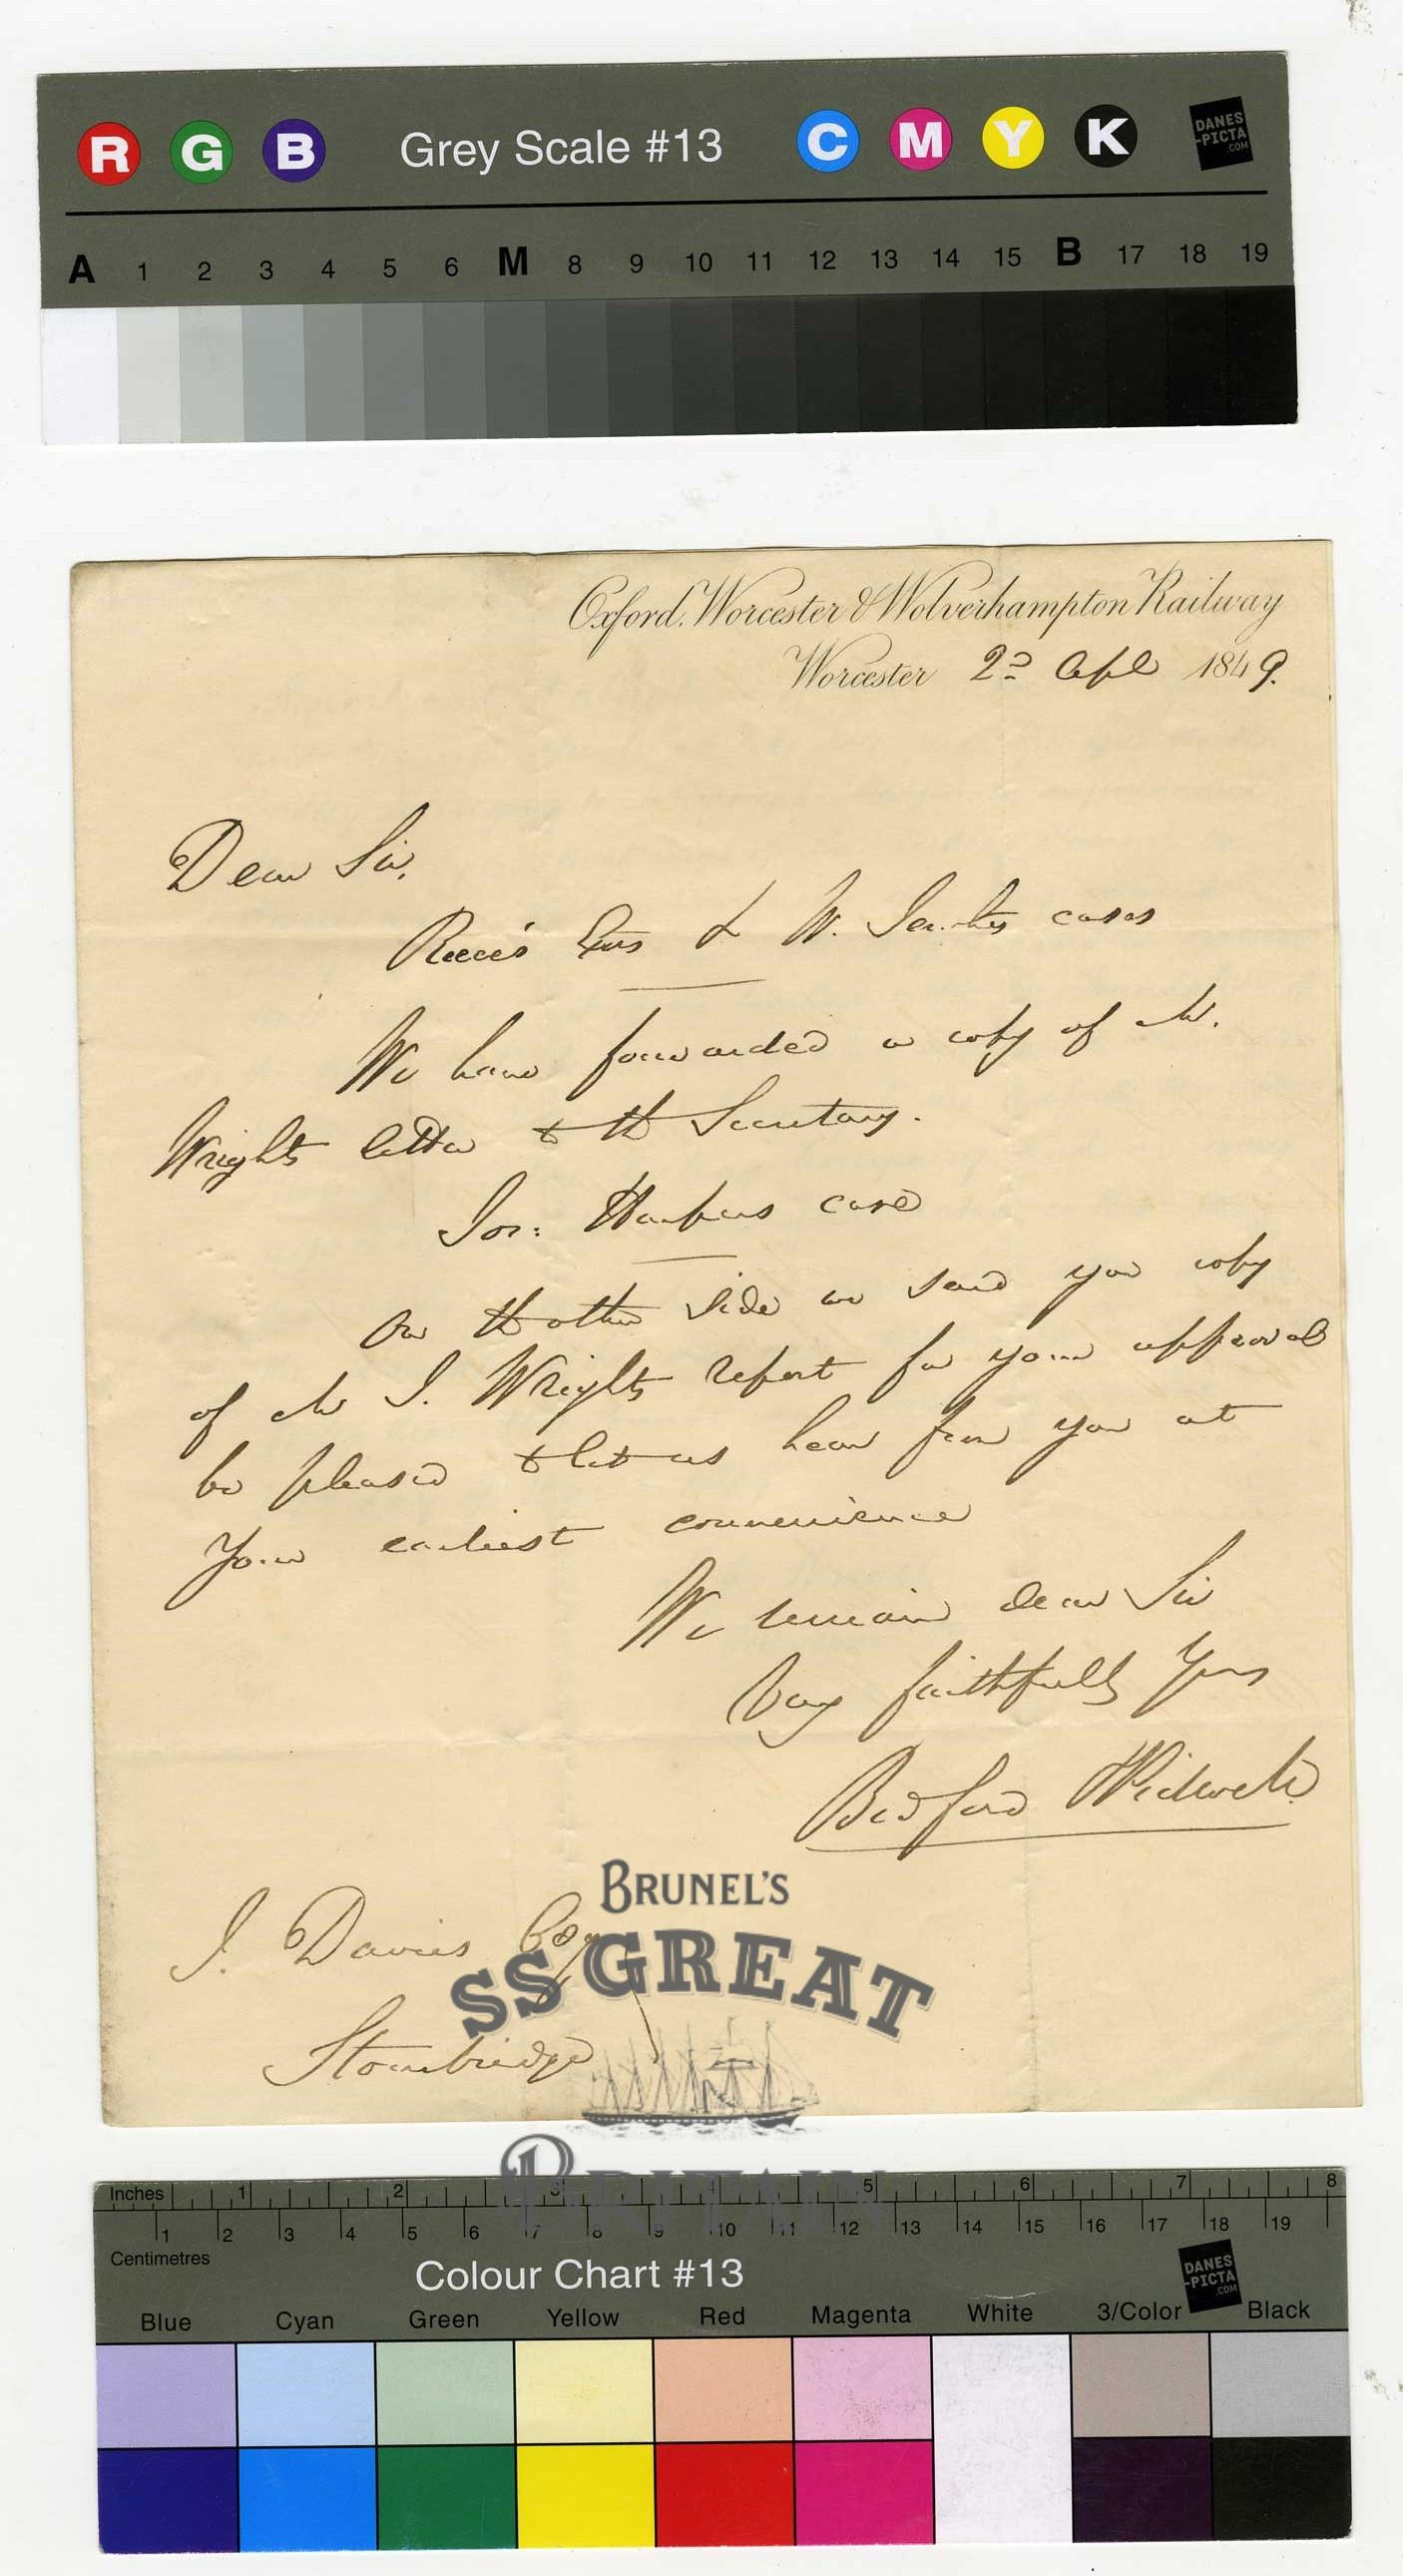 R G B Grey Scale #13 C M Y K DANES-PICTA.COM
A 1 2 3 4 5 6 M 8 9 10 11 12 13 14 15 B 17 18 19
Oxford, Worcester & Wolverhampton Railway
Worcester 2d Apl 1849.
Dear Sir,
Reece's Exors & W. cases
We have forwarded a copy of Mr.
Wrights letter to the Secretary.
Jos: Harpers case
On the other side we send you copy
of Mr J. Wrights report for your approval
be pleased to let us hear from you at
your earliest convenience
We remain dear Sir
Very faithfully Yours
Bedford & Pidcock
J. Davies Esq
Stourbridge
BRUNEL'S
SS GREAT
BRITAIN
Inches 1 2 3 4 5 6 7 8
1 2 3 4 5 6 7 8 9 10 11 12 13 14 15 16 17 18 19
Centimetres
Colour Chart #13 DANES-PICTA.COM
Blue Cyan Green Yellow Red Magenta White 3/Color Black